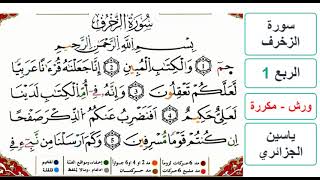 سُورَةُ الزُّخْرُفِ
بِسْمِ اللَّهِ الرَّحْمَٰنِ الرَّحِيمِ
حمٓ ۝١ وَالْكِتَٰبِ الْمُبِينِ ۝٢ إِنَّا جَعَلْنَٰهُ قُرْءَٰنًا عَرَبِيًّا
لَّعَلَّكُمْ تَعْقِلُونَ ۝٣ وَإِنَّهُۥ فِےٓ أُمِّ الْكِتَٰبِ لَدَيْنَا
لَعَلِيٌّ حَكِيمٌ ۝٤ أَفَنَضْرِبُ عَنكُمُ الذِّكْرَ صَفْحًا
إِن كُنتُمْ قَوْمًا مُّسْرِفِينَ ۝٥ وَكَمْ أَرْسَلْنَا مِن نَّبِےٓءٍ فِے
سورة
الزخرف
الربع 1
ورش - مكررة
ياسين
الجزائري